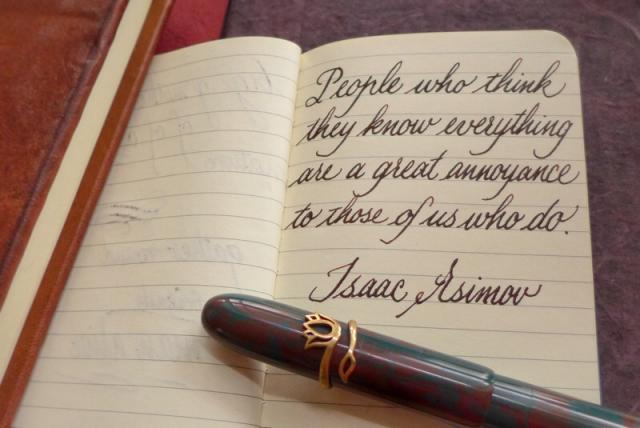 People who think
they know everything
are a great annoyance
to those of us who do.
Isaac Asimov